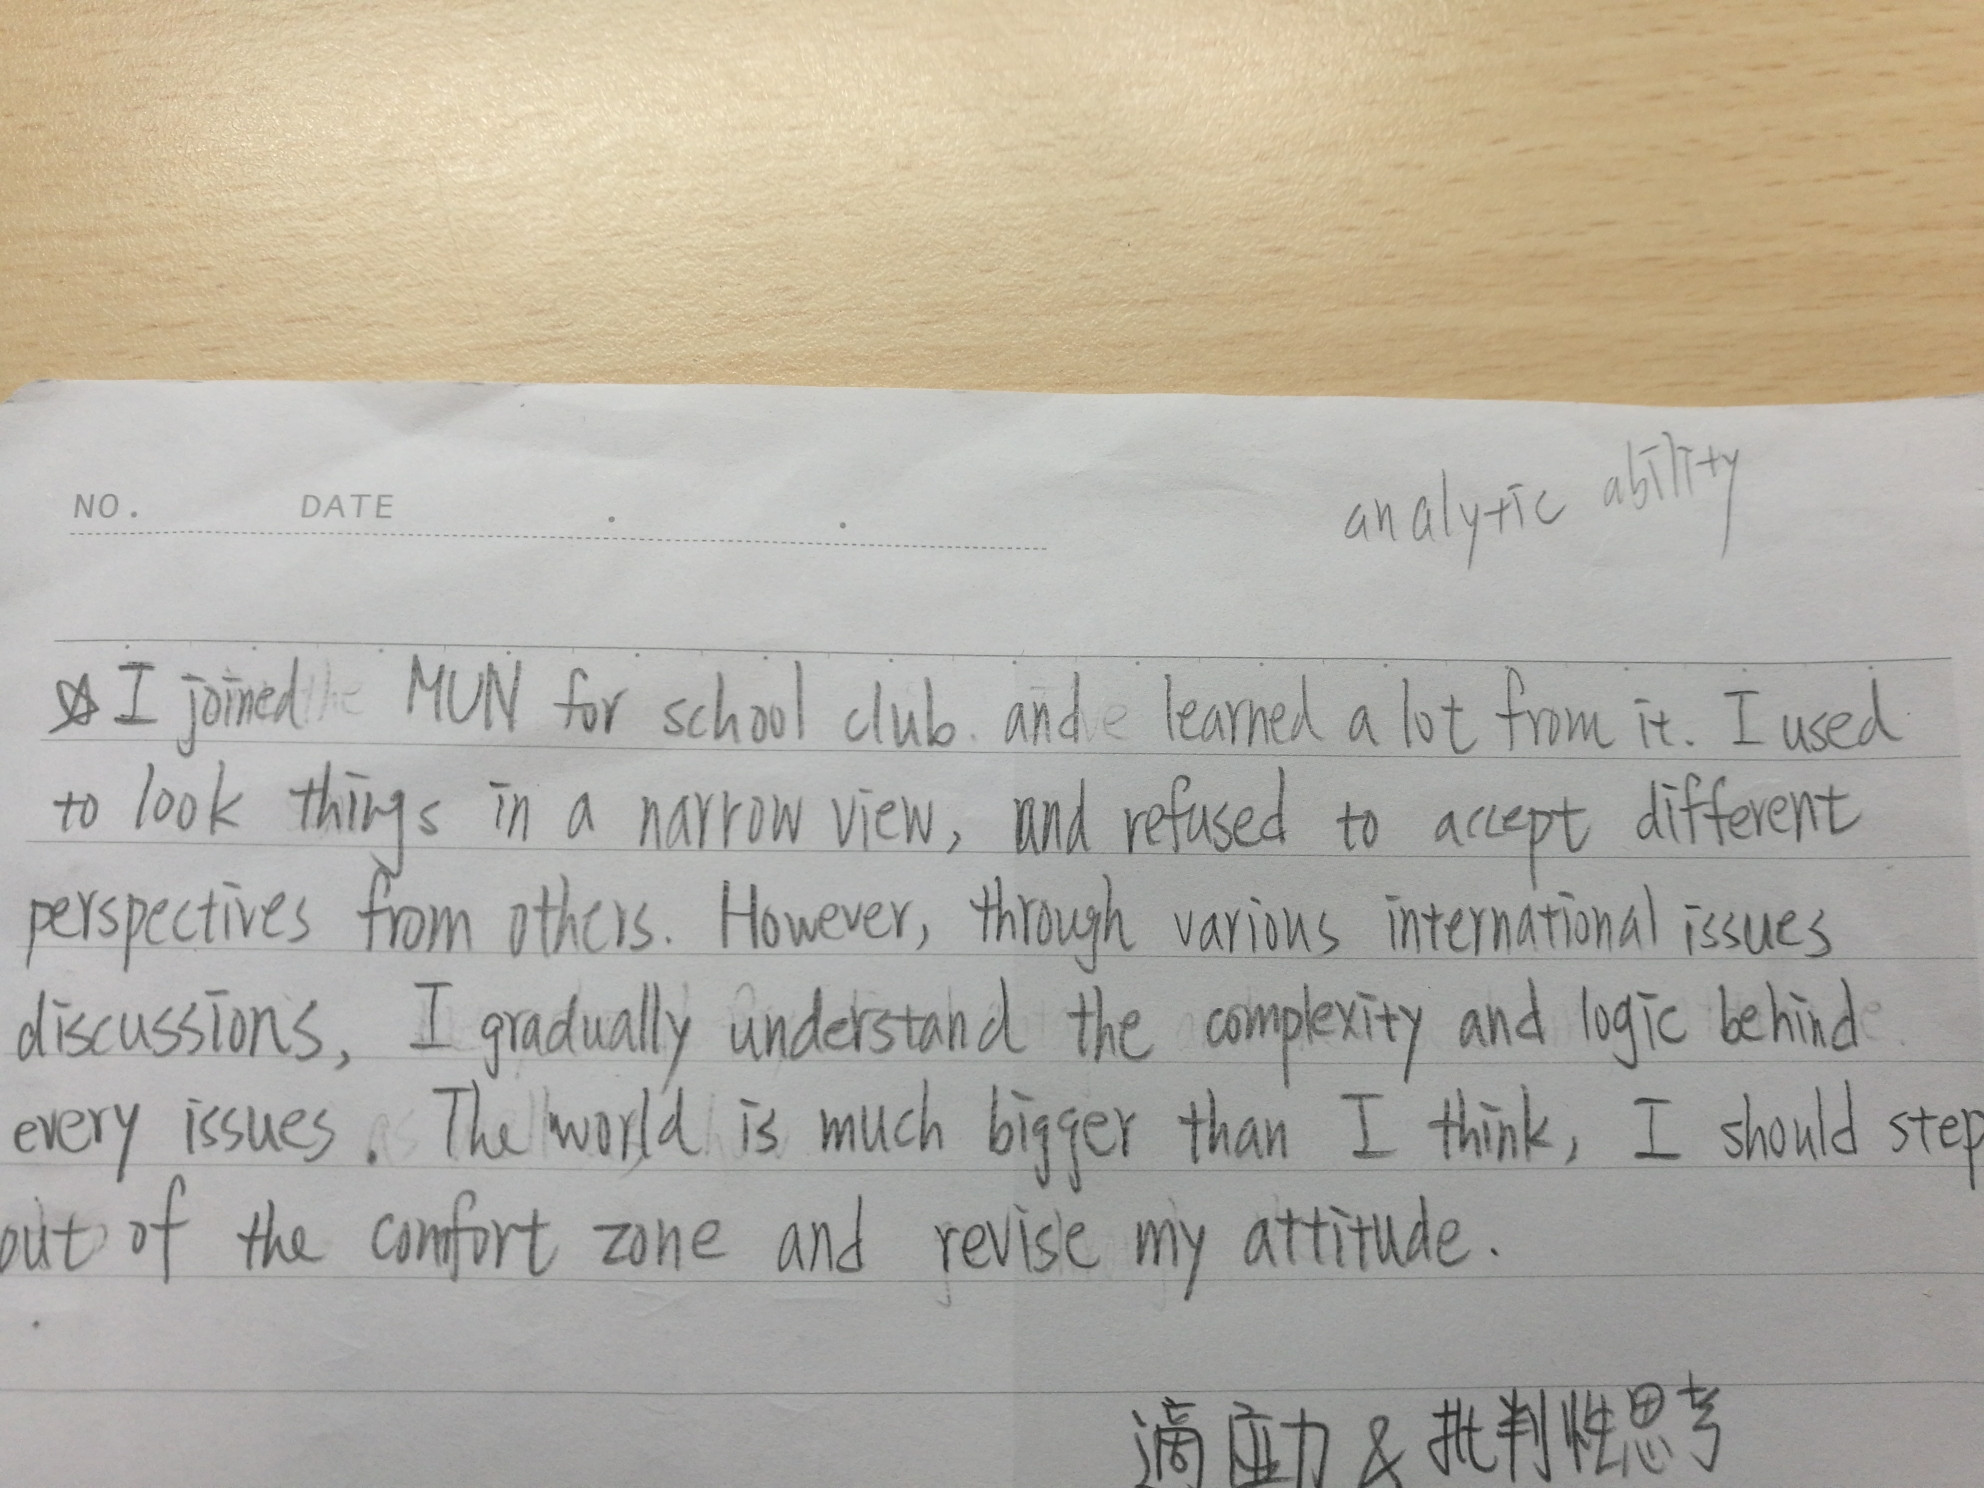 NO. DATE
analytic ability
☆ I joined MUN for school club. and learned a lot from it. I used
to look things in a narrow view, and refused to accept different
perspectives from others. However, through various international issues
discussions, I gradually understand the complexity and logic behind
every issues. The world is much bigger than I think, I should step
out of the comfort zone and revise my attitude.
適应力 & 批判性思考